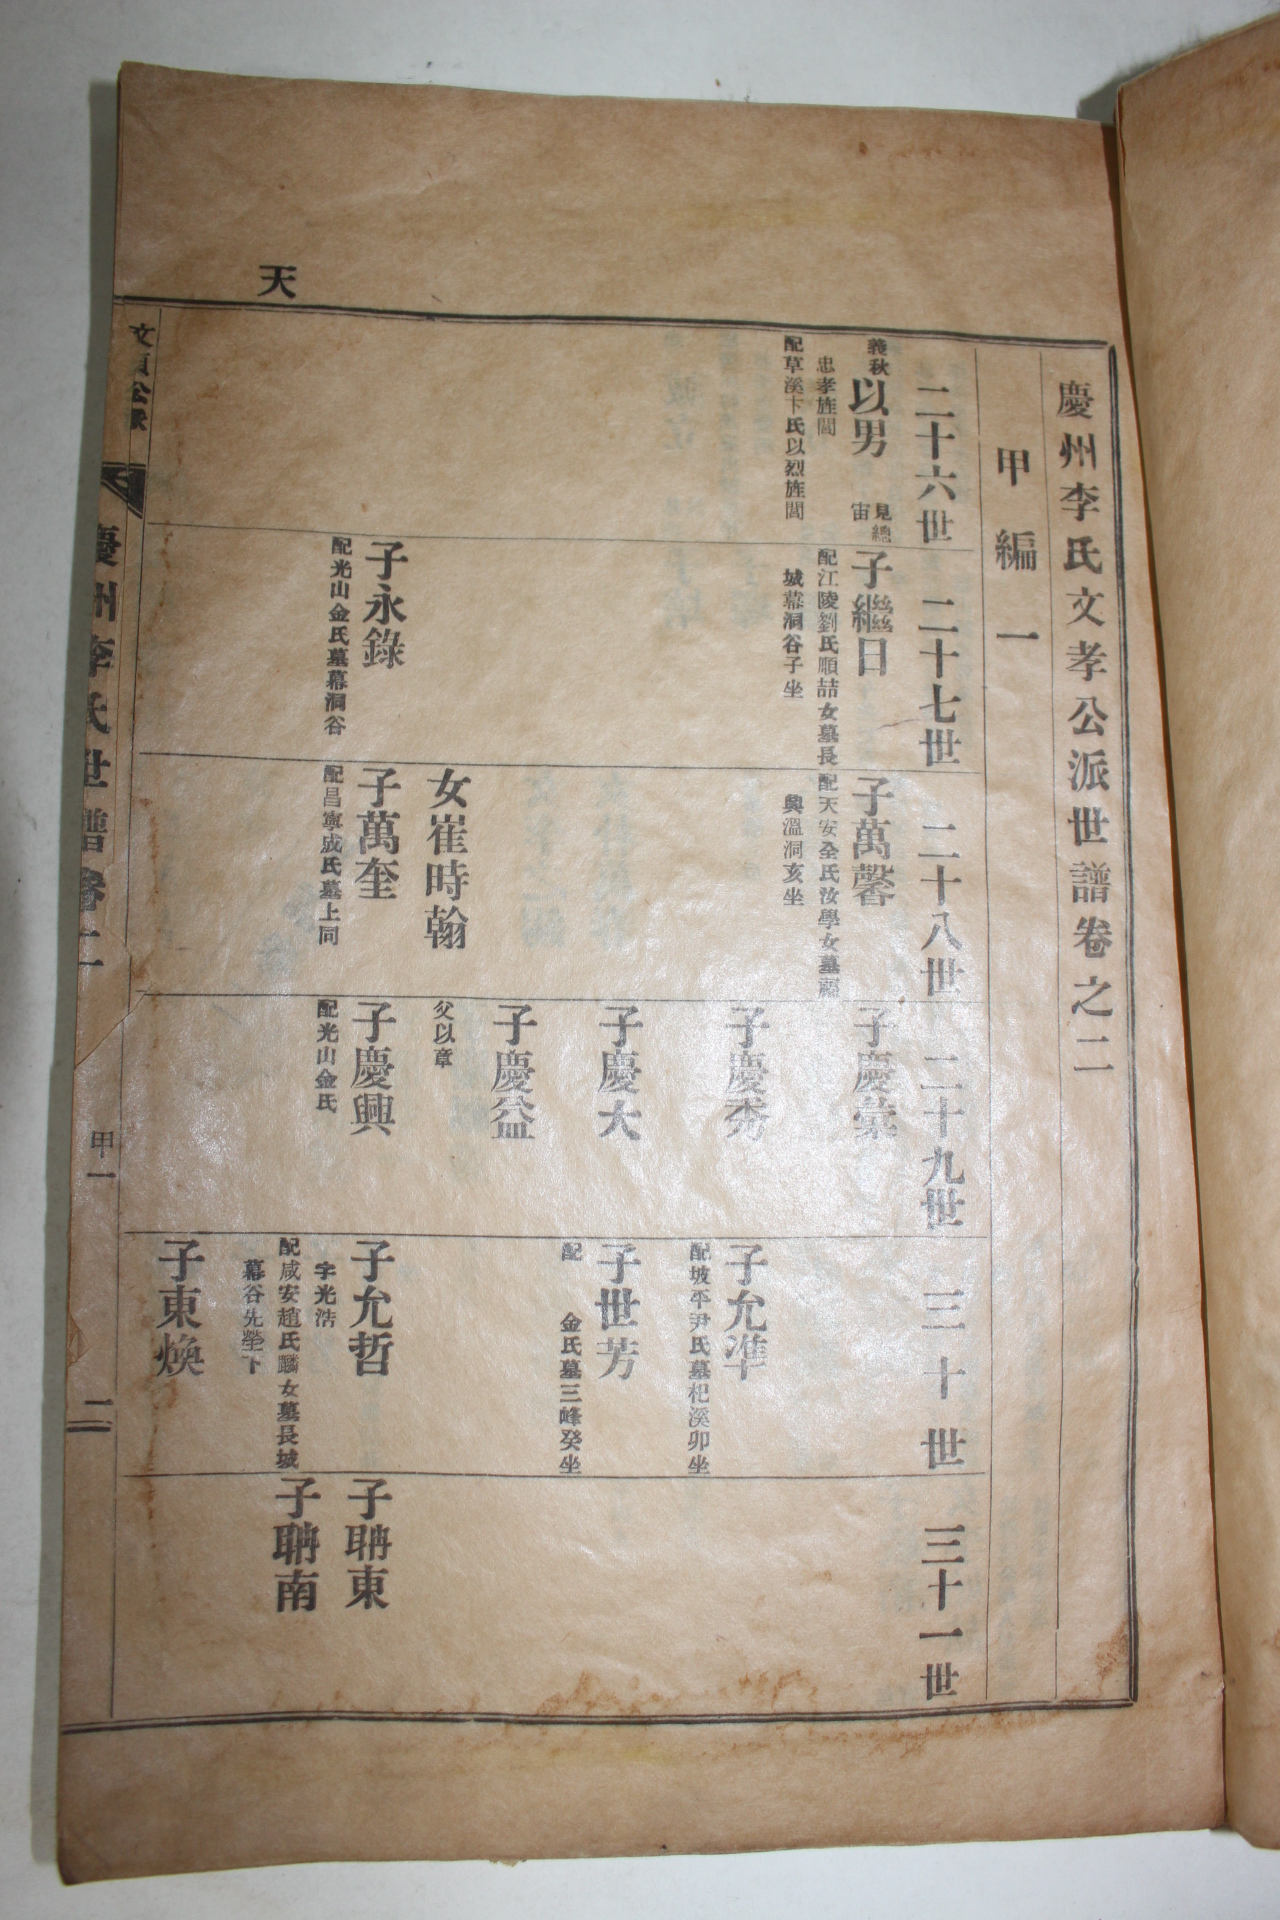 天
慶州李氏文孝公派世譜卷之二
甲編一
二十六世
義秋
以男
見總
宙
忠孝旌閭
配草溪卞氏以烈旌閭
二十七世
子繼日
配江陵劉氏順喆女墓長
城幕洞谷子坐
子永錄
配光山金氏墓幕洞谷
二十八世
子萬馨
配天安全氏汝學女墓
興溫洞亥坐
女崔時翰
子萬奎
配昌寧成氏墓上同
二十九世
子慶彙
子慶秀
子慶大
子慶益
父以章
子慶興
配光山金氏
三十世
子允準
配坡平尹氏墓杞溪卯坐
子世芳
配 金氏墓三峰癸坐
子允哲
字光浩
配咸安趙氏麟女墓長城
幕谷先塋下
子東煥
三十一世
子聃東
子聃南
慶州李氏世譜卷二
甲一
二